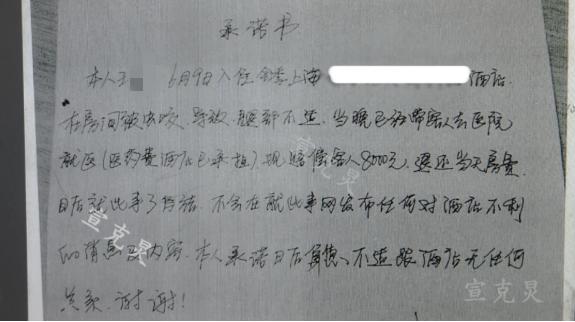 承诺书
本人王 6月9日入住全季上海 酒店.
在房间被虫咬,导致,腿部不适.当晚已经带客人去医院
就医(医药费酒店已承担),现赔偿客人8000元,退还当天房费.
日后就此事了结.不会在就此事网发布任何对酒店不利
的消息及内容.本人承诺日后身体、不适跟酒店无任何
关系.谢谢!
宣克炅
宣克炅
宣克炅